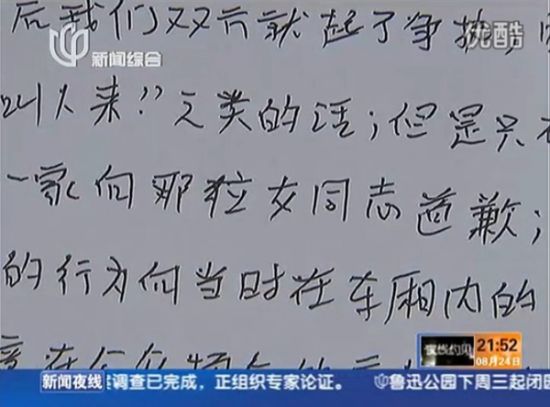 新闻综合
优酷
后我们双方就起了争执,
叫人来”之类的话;但是只
一家向那位女同志道歉;
的行为向当时在车厢内的
夜线约见
21:52
08月24日
新闻夜线
调查已完成,正组织专家论证。
鲁迅公园下周三起闭